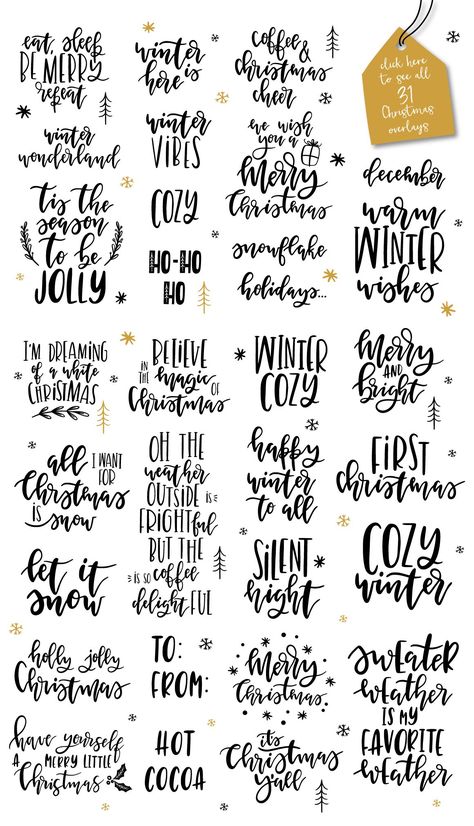 eat, sleep
BE MERRY
repeat
winter
here is
coffee
&
christmas
cheer
click here
to see all
31
Christmas
overlays
winter
wonderland
winter
VIBES
we wish
you a
Merry
Christmas
december
'tis the
season
to be
JOLLY
COZY
HO-HO
HO
snowflake
holidays...
warm
WINTER
wishes
I'M DREAMING
of a white
CHRISTMAS
BELIEVE
IN THE magic OF
Christmas
WINTER
COZY
Merry
AND
bright
all I WANT
FOR
Christmas
is snow
OH THE
weather
OUTSIDE is
FRIGHTful
BUT THE
is so coffee
delightFUL
happy
winter
to all
FIRST
christmas
let it
snow
SILENT
night
COZY
winter
holly jolly
Christmas
TO:
FROM:
Merry
Christmas
SWEATER
weather
IS MY
FAVORITE
weather
have yourself
A MERRY LITTLE
Christmas
HOT
COCOA
it's
Christmas
y'all